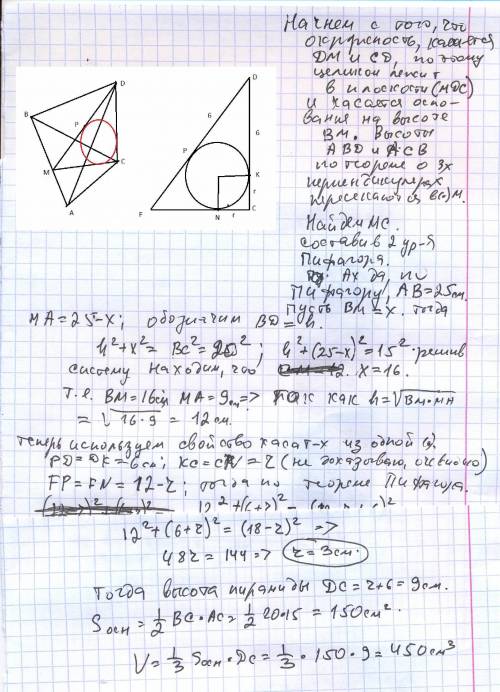 Начнем с того, что
окружность, касается
DM и CD, поэтому
целиком лежит
в плоскости (MDC)
и касается осно-
вания на высоте
BM. Высоты
ABD и ACB
по теореме о 3х
перпендикулярах
пересекаются в(·)M.
Найдем MC.
составив 2 ур-я
Пифагора.
Ах да, по
Пифагору, AB=25см.
Пусть BM=x. тогда
MA=25-x; обозначим BD=h.
h²+x²=BC²=20²; h²+(25-x)²=15² решив
систему находим, что x=16.
т.е. BM=16см, MA=9см=> так как h=√BM·MA
=√16·9 = 12см.
теперь используем свойство касат-х из одной (·).
PD=DK=6см; KC=CN=r (не доказываю, очевидно)
FP=FN=12-r; тогда по теореме Пифагора.
12²+(6+r)²=(18-r)² =>
48r=144=> r=3см.
Тогда высота пирамиды DC=r+6=9см.
Sосн=½BC·AC=½20·15=150см².
V=⅓Sосн·DC=⅓·150·9=450см³
B
D
P
C
M
A
D
6
6
P
K
r
F
N
r
C